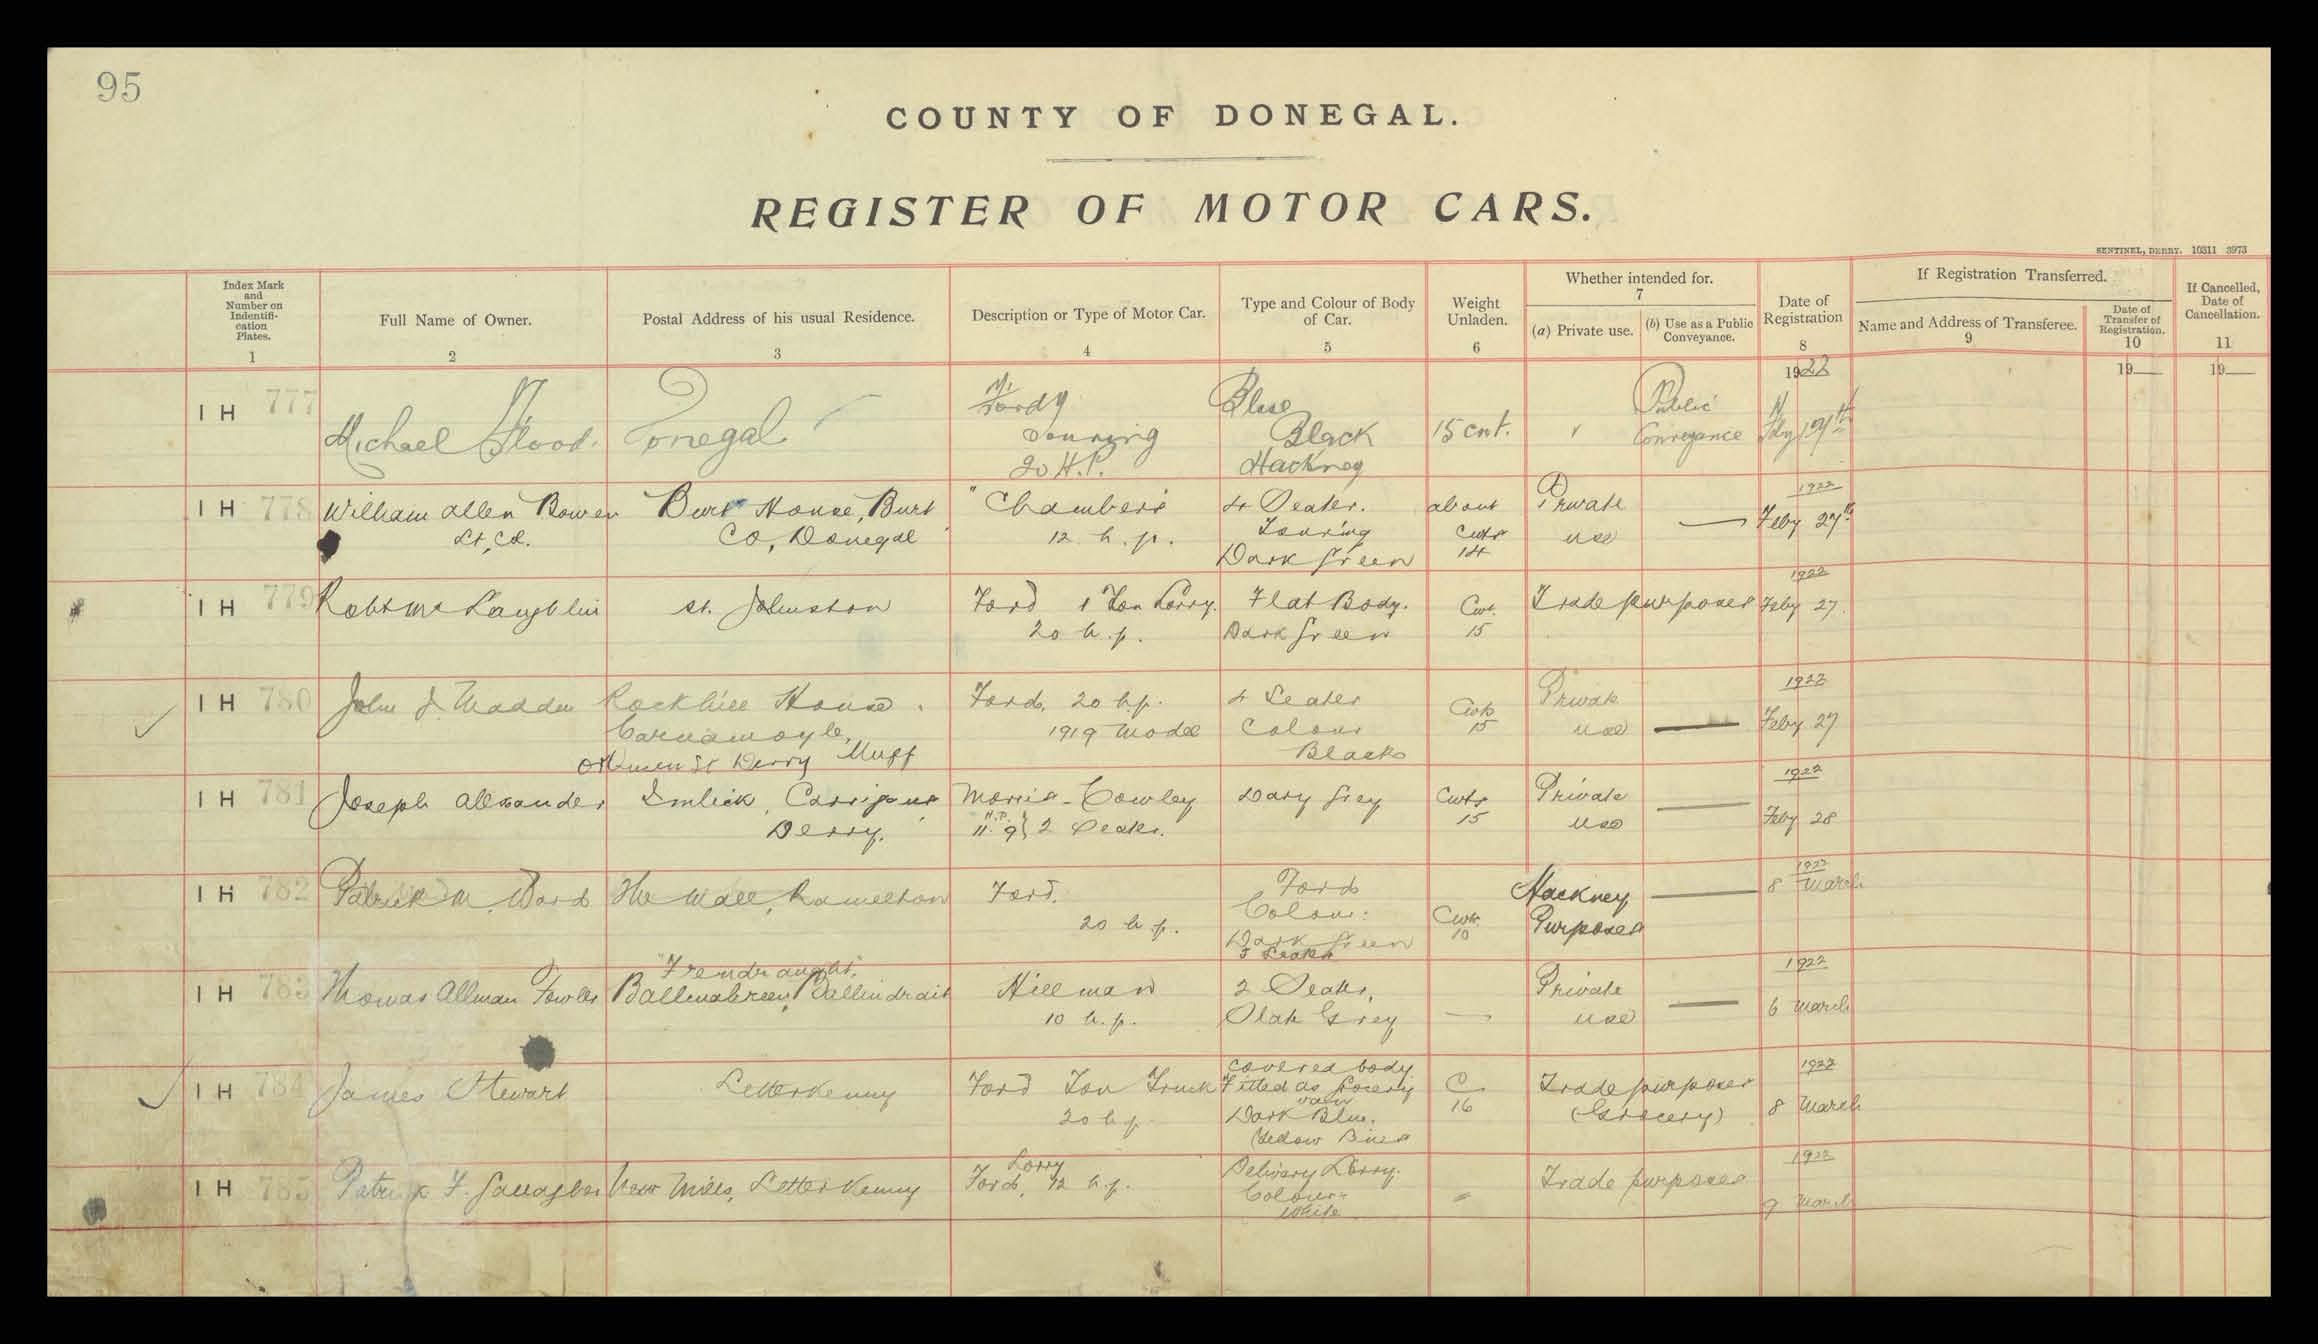 95
COUNTY OF DONEGAL.
REGISTER OF MOTOR CARS.
SENTINEL, DERRY. 10311 3973
Index Mark and Number on Indentifi-cation Plates. 1
Full Name of Owner. 2
Postal Address of his usual Residence. 3
Description or Type of Motor Car. 4
Type and Colour of Body of Car. 5
Weight Unladen. 6
Whether intended for. 7
(a) Private use.
(b) Use as a Public Conveyance.
Date of Registration 8
If Registration Transferred.
Name and Address of Transferee. 9
Date of Transfer of Registration. 10
If Cancelled, Date of Cancellation. 11
1922 19 19
I H 777 Michael Flood. Donegal Ford Touring 20 H.P. Blue Black Hackney 15 cwt. Public Conveyance
I H 778 William Allen Bowen Lt, Cd. Burt House, Burt Co, Donegal Chambers 12 h.p. 4 Seater. Touring Dark Green about Cwts 14 Private use 1922 Feby 27th
I H 779 Robt Mc Laughlin St. Johnston Ford 1 Ton Lorry. 20 h.p. Flat Body. Dark Green Cwt. 15 Trade purposes 1922 Feby 27.
I H 780 John J. Madden Rockhill House, Carnamoyle, Muff or Queen St Derry Ford, 20 h.p. 1919 Model 4 Seater Colour Black Cwts 15 Private use 1922 Feby 27
I H 781 Joseph Alexander Imlick, Carrigans, Derry. Morris-Cowley H.P. 11.9} 2 Seater. Grey Cwts 15 Private use 1922 Feby 28
I H 782 Patrick M. Ward The Mall, Ramelton Ford. 20 h.p. Ford Colour: Dark Green 5 Seater Cwts. 10 Hackney Purposes 1922 8 March
I H 783 Thomas Allman Fowler "Frendraught", Ballinabreen, Ballindrait Hillman 10 h.p. 2 Seater, Grey Private use 1922 6 March
I H 784 James Stewart Letterkenny Ford Ton Truck 20 h.p. Covered body Fitted as Grocery van Dark Blue. Yellow Lines C 16 Trade purposes (Grocery) 1922 8 March
I H 785 Patrick F. Gallagher New Mills, Letterkenny Ford, Lorry 12 h.p. Delivery Lorry. Colour:- White Trade purposes 1922 9 March